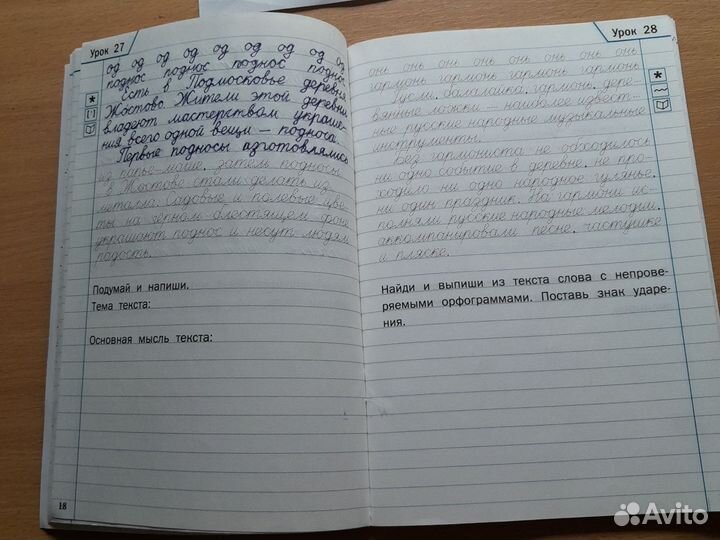 Урок 27
од од од од од од од од од
поднос поднос поднос поднос
Есть в Подмосковье деревня
Жостово. Жители этой деревни
владеют мастерством украше-
ния всего одной вещи — подноса.
Первые подносы изготовлялись
из папье-маше, затем подносы
в Жостове стали делать из
металла. Садовые и полевые цве-
ты на чёрном блестящем фоне
украшают поднос и несут людям
радость.
Подумай и напиши.
Тема текста:
Основная мысль текста:
18
Урок 28
онь онь онь онь онь онь онь онь
гармонь гармонь гармонь гармонь
Гусли, балалайка, гармонь, дере-
вянные ложки — наиболее извест-
ные русские народные музыкальные
инструменты.
Без гармониста не обходилось
ни одно событие в деревне, не про-
ходило ни одно народное гулянье,
ни один праздник. На гармони ис-
полняли русские народные мелодии,
аккомпанировали песне, частушке
и пляске.
Найди и выпиши из текста слова с непрове-
ряемыми орфограммами. Поставь знак ударе-
ния.
Avito